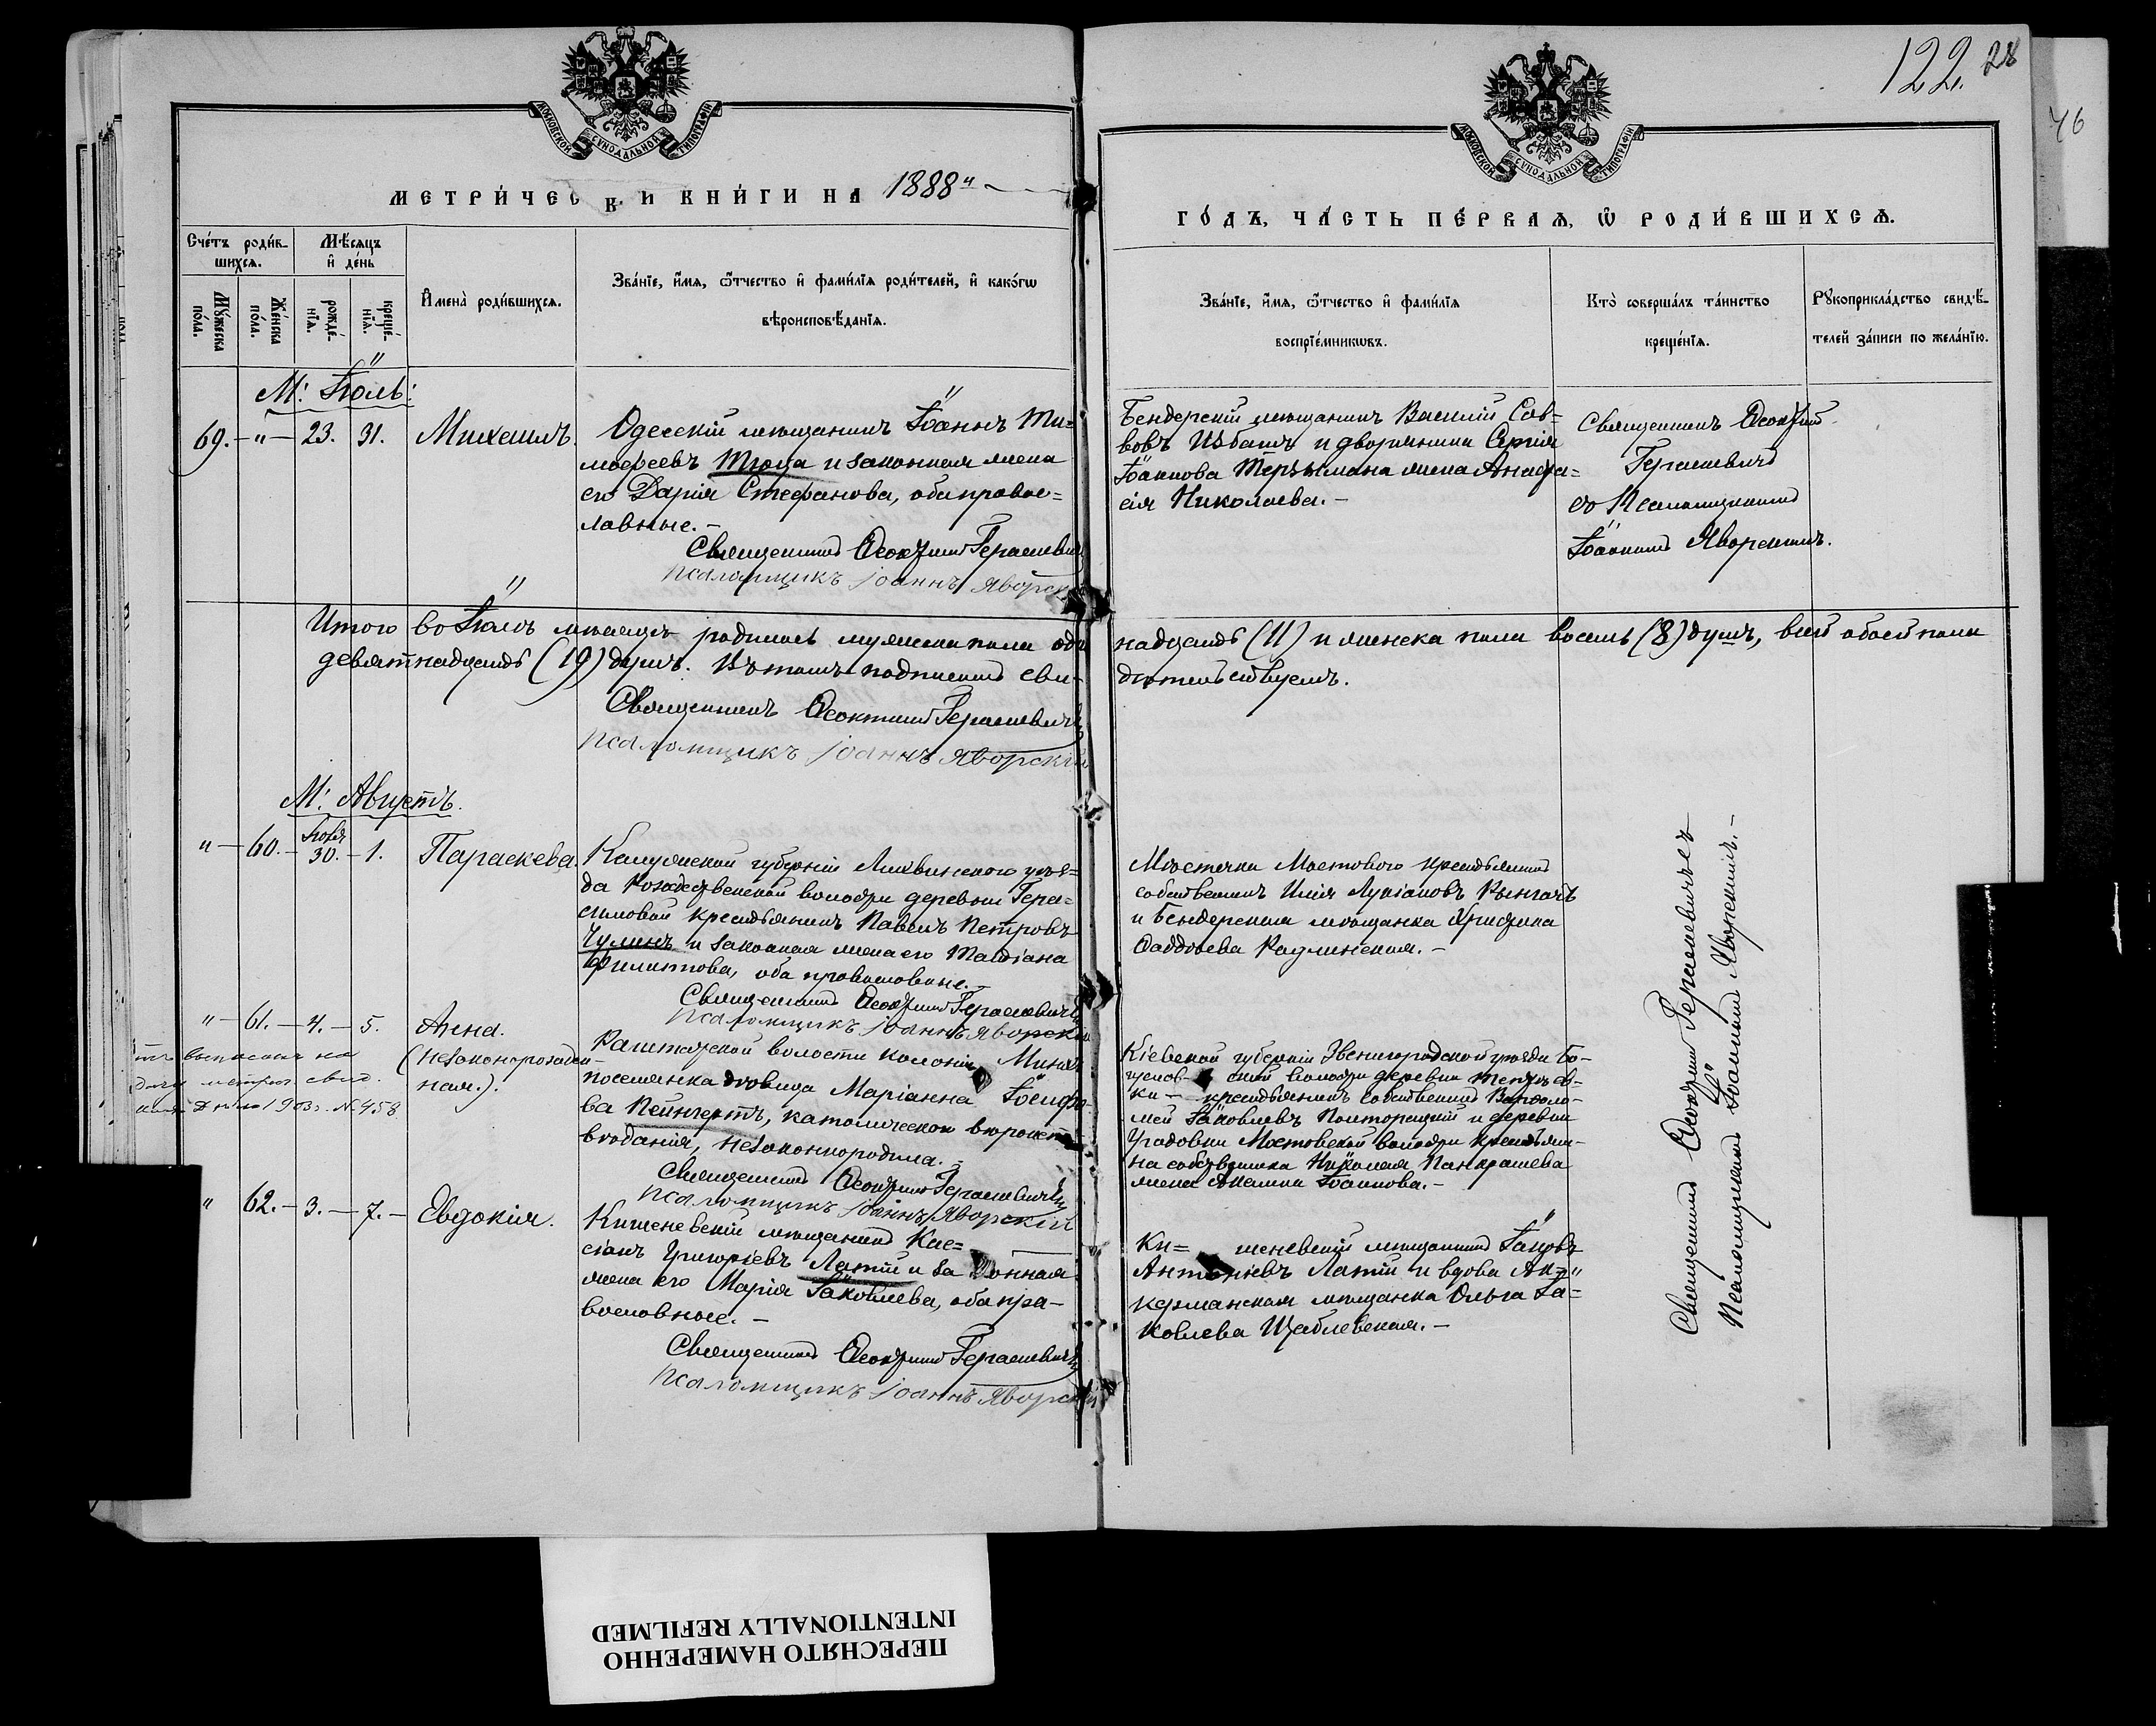 122. 28
46
МОСКОВСКОЙ СѴНОДАЛЬНОЙ ТИПОГРАФІИ
МОСКОВСКОЙ СѴНОДАЛЬНОЙ ТИПОГРАФІИ
МЕТРИ́ЧЕС К И КНИ́ГИ НА 1888й
ГО́ДЪ, ЧА́СТЬ ПЕ́РВАѦ, Ѡ РОДИ́ВШИХСѦ.
Сче́тъ роди́в-
шихсѧ.
Мѣ́сѧцъ
и҆ де́нь
Мꙋ́жеска по́ла.
Же́нска по́ла.
рожде́-
нїѧ.
креще́-
нїѧ.
И҆мена̀ роди́вшихсѧ.
Зва́нїе, и҆́мѧ, ѻ҆́тчество и҆ фами́лїѧ роди́телей, и҆ како́гѡ
вѣроисповѣ́данїѧ.
Зва́нїе, и҆́мѧ, ѻ҆́тчество и҆ фами́лїѧ
воспрїе́мникѡвъ.
Кто̀ соверша́лъ та́инство
креще́нїѧ.
Рꙋкоприкла́дство свидѣ́-
телей за́писи по жела́нїю.
М: Іюль:
69. - " - 23. 31. Михаилъ.
Одесскій мѣщанинъ Іоаннъ Ти-
моѳеевъ Тюца и законная жена
его Дарія Стефанова, оба право-
лавные. -
Священникъ Ѳеоктистъ Герасиевичъ
Псаломщикъ Іоаннъ Яворскій
Бендерскій мѣщанинъ Василій Сав-
вовъ и дворянина Сергія
Іоаннова жена Анаста-
сія Николаева. -
Священникъ Ѳеоктистъ
Герасиевичъ
съ Псаломщикомъ
Іоанномъ Яворскимъ.
Итого во Іюлѣ мѣсяцѣ родилось мужеска пола оди-
надцать (11) и женска пола восемь (8) душъ, всей обоей пола
девятнадцать (19) душъ. Въ томъ подписомъ сви-
дѣтельствуемъ.
Священникъ Ѳеоктистъ Герасиевичъ
Псаломщикъ Іоаннъ Яворскій
М: Августъ.
" - 60. - Іюля 30. - 1. Параскева.
Калужской губерніи Лихвинскаго уѣз-
да Рождественской волости деревни Гера-
симовой крестьянинъ Павелъ Петровъ
Чулинъ и законная жена его Татіана
Филиппова, оба православные. -
Священникъ Ѳеоктистъ Герасиевичъ
Псаломщикъ Іоаннъ Яворскій
Мѣстечка Мостового крестьянинъ
собственникъ Илія Лукіановъ
и Бендерская мѣщанка Христина
Ѳаддѣева Радлинская. -
" - 61. - 4. - 5. Анна.
(незаконорожден-
ная.).
выписано на
метрич. свид.
1903 г. № 458
Раштадской волости колоніи
поселянка вдовица Маріанна Іосифо-
ва католическаго вѣроиспо-
вѣданія, незаконнородила. -
Священникъ Ѳеоктистъ Герасиевичъ
Псаломщикъ Іоаннъ Яворскій
Кіевской губерніи Звенигородскаго уѣзда Бо-
ской волости деревни
ки - крестьянинъ собственникъ Варѳоло-
мей Іаковлевъ Полторацкій и деревни
Градовки Мостовской волости крестьяни-
на собственника Николая Панкратьева
жена Акилина Іоаннова. -
" 62. - 3. - 7. - Евдокія.
Кишеневскій мѣщанинъ Кас-
сіанъ Григоріевъ Латій и законная
жена его Марія Іаковлева, оба пра-
вославные. -
Священникъ Ѳеоктистъ Герасиевичъ
Псаломщикъ Іоаннъ Яворскій
Ки= шеневскій мѣщанинъ Іаковъ
Антоніевъ Латій и вдова Ак-
керманская мѣщанка Ольга Іа-
ковлева Щаблевская. -
Священникъ Ѳеоктистъ Герасиевичъ съ
Псаломщикомъ Іоанномъ Яворскимъ. -
ПЕРЕСНЯТО НАМЕРЕННО
INTENTIONALLY REFILMED